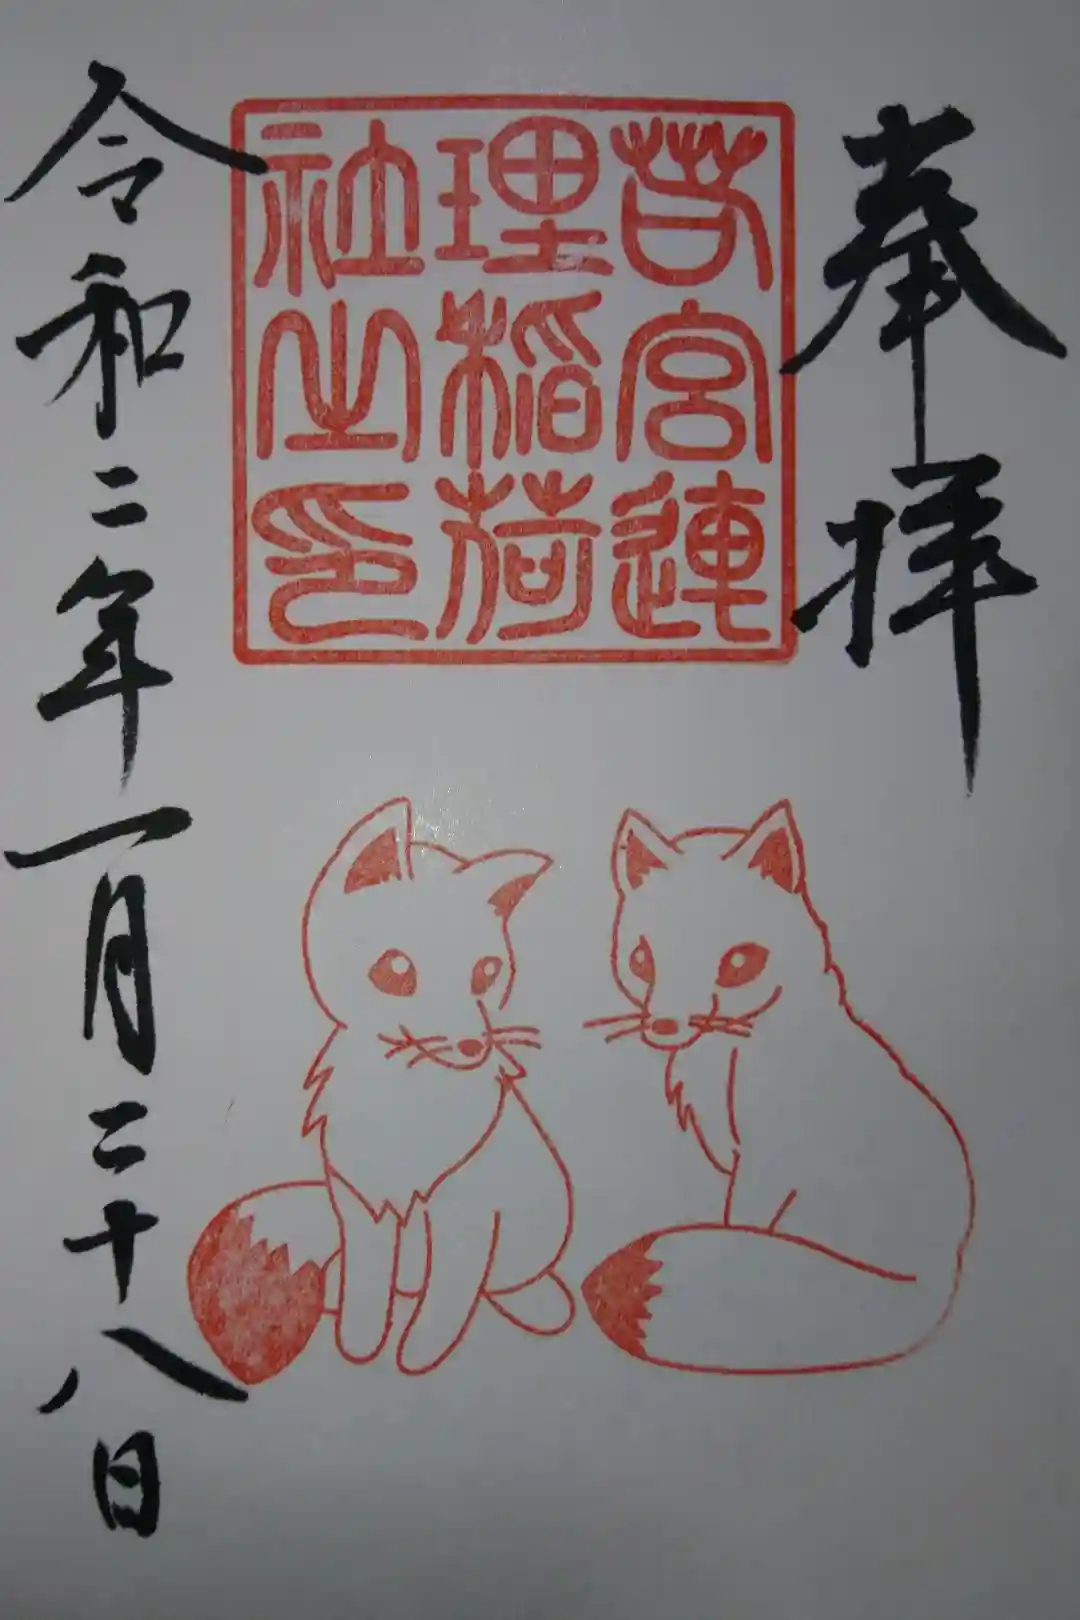 奉拝
若宮連
理稲荷
社之印
令和二年一月二十八日